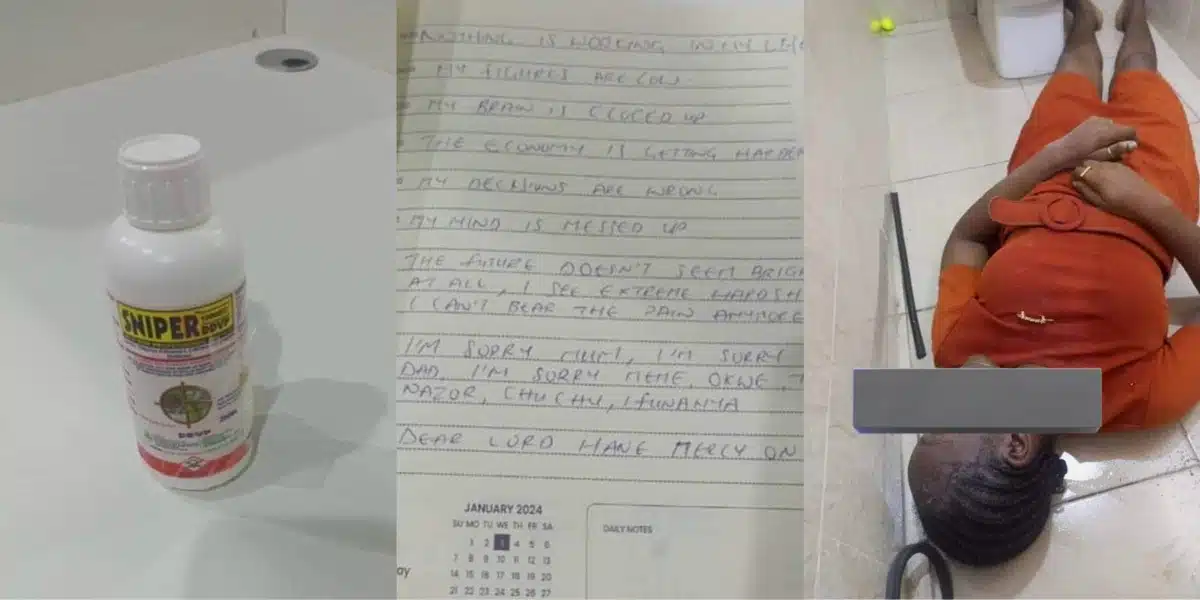 SNIPER
DDVP
DDVP
NOTHING IS WORKING IN MY LIFE
MY FIGURES ARE LOW
MY BRAIN IS CLOCED UP
THE ECONOMY IS GETTING HARDER
MY DECISIONS ARE WRONG
MY MIND IS MESSED UP
THE FUTURE DOESN'T SEEM BRIGH
AT ALL, I SEE EXTREME HARDSH
I CAN'T BEAR THE PAIN ANYMORE
I'M SORRY MUM, I'M SORRY
DAD, I'M SORRY MEME, OKWE, 
NAZOR, CHUCHU, IFUNANYA
DEAR LORD HAVE MERCY ON
JANUARY 2024
SU MO TU WE TH FR SA
1 2 3 4 5 6
7 8 9 10 11 12 13
14 15 16 17 18 19 20
21 22 23 24 25 26 27
DAILY NOTES
ay